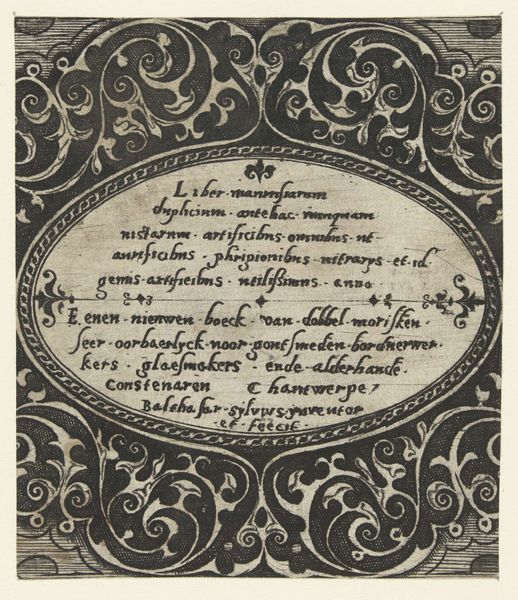 Liber · maurusiarum
duplicium · antehac · nunquam
uistarum · artificibus · omnibus · ut
aurificibus · phrigionibus · uitrarys · et · id ·
genus · artificibus · utilissimus · anno
E enen · nieuwen · boeck · van · dobbel · morisken ·
seer · oorbaerlyck · uoor · gontsmeden · borduerwer ·
kers · glaesmakers · ende · alderhande ·
Constenaren Thantwerpe
Balthasar · sylvius · inventor
et · feecit